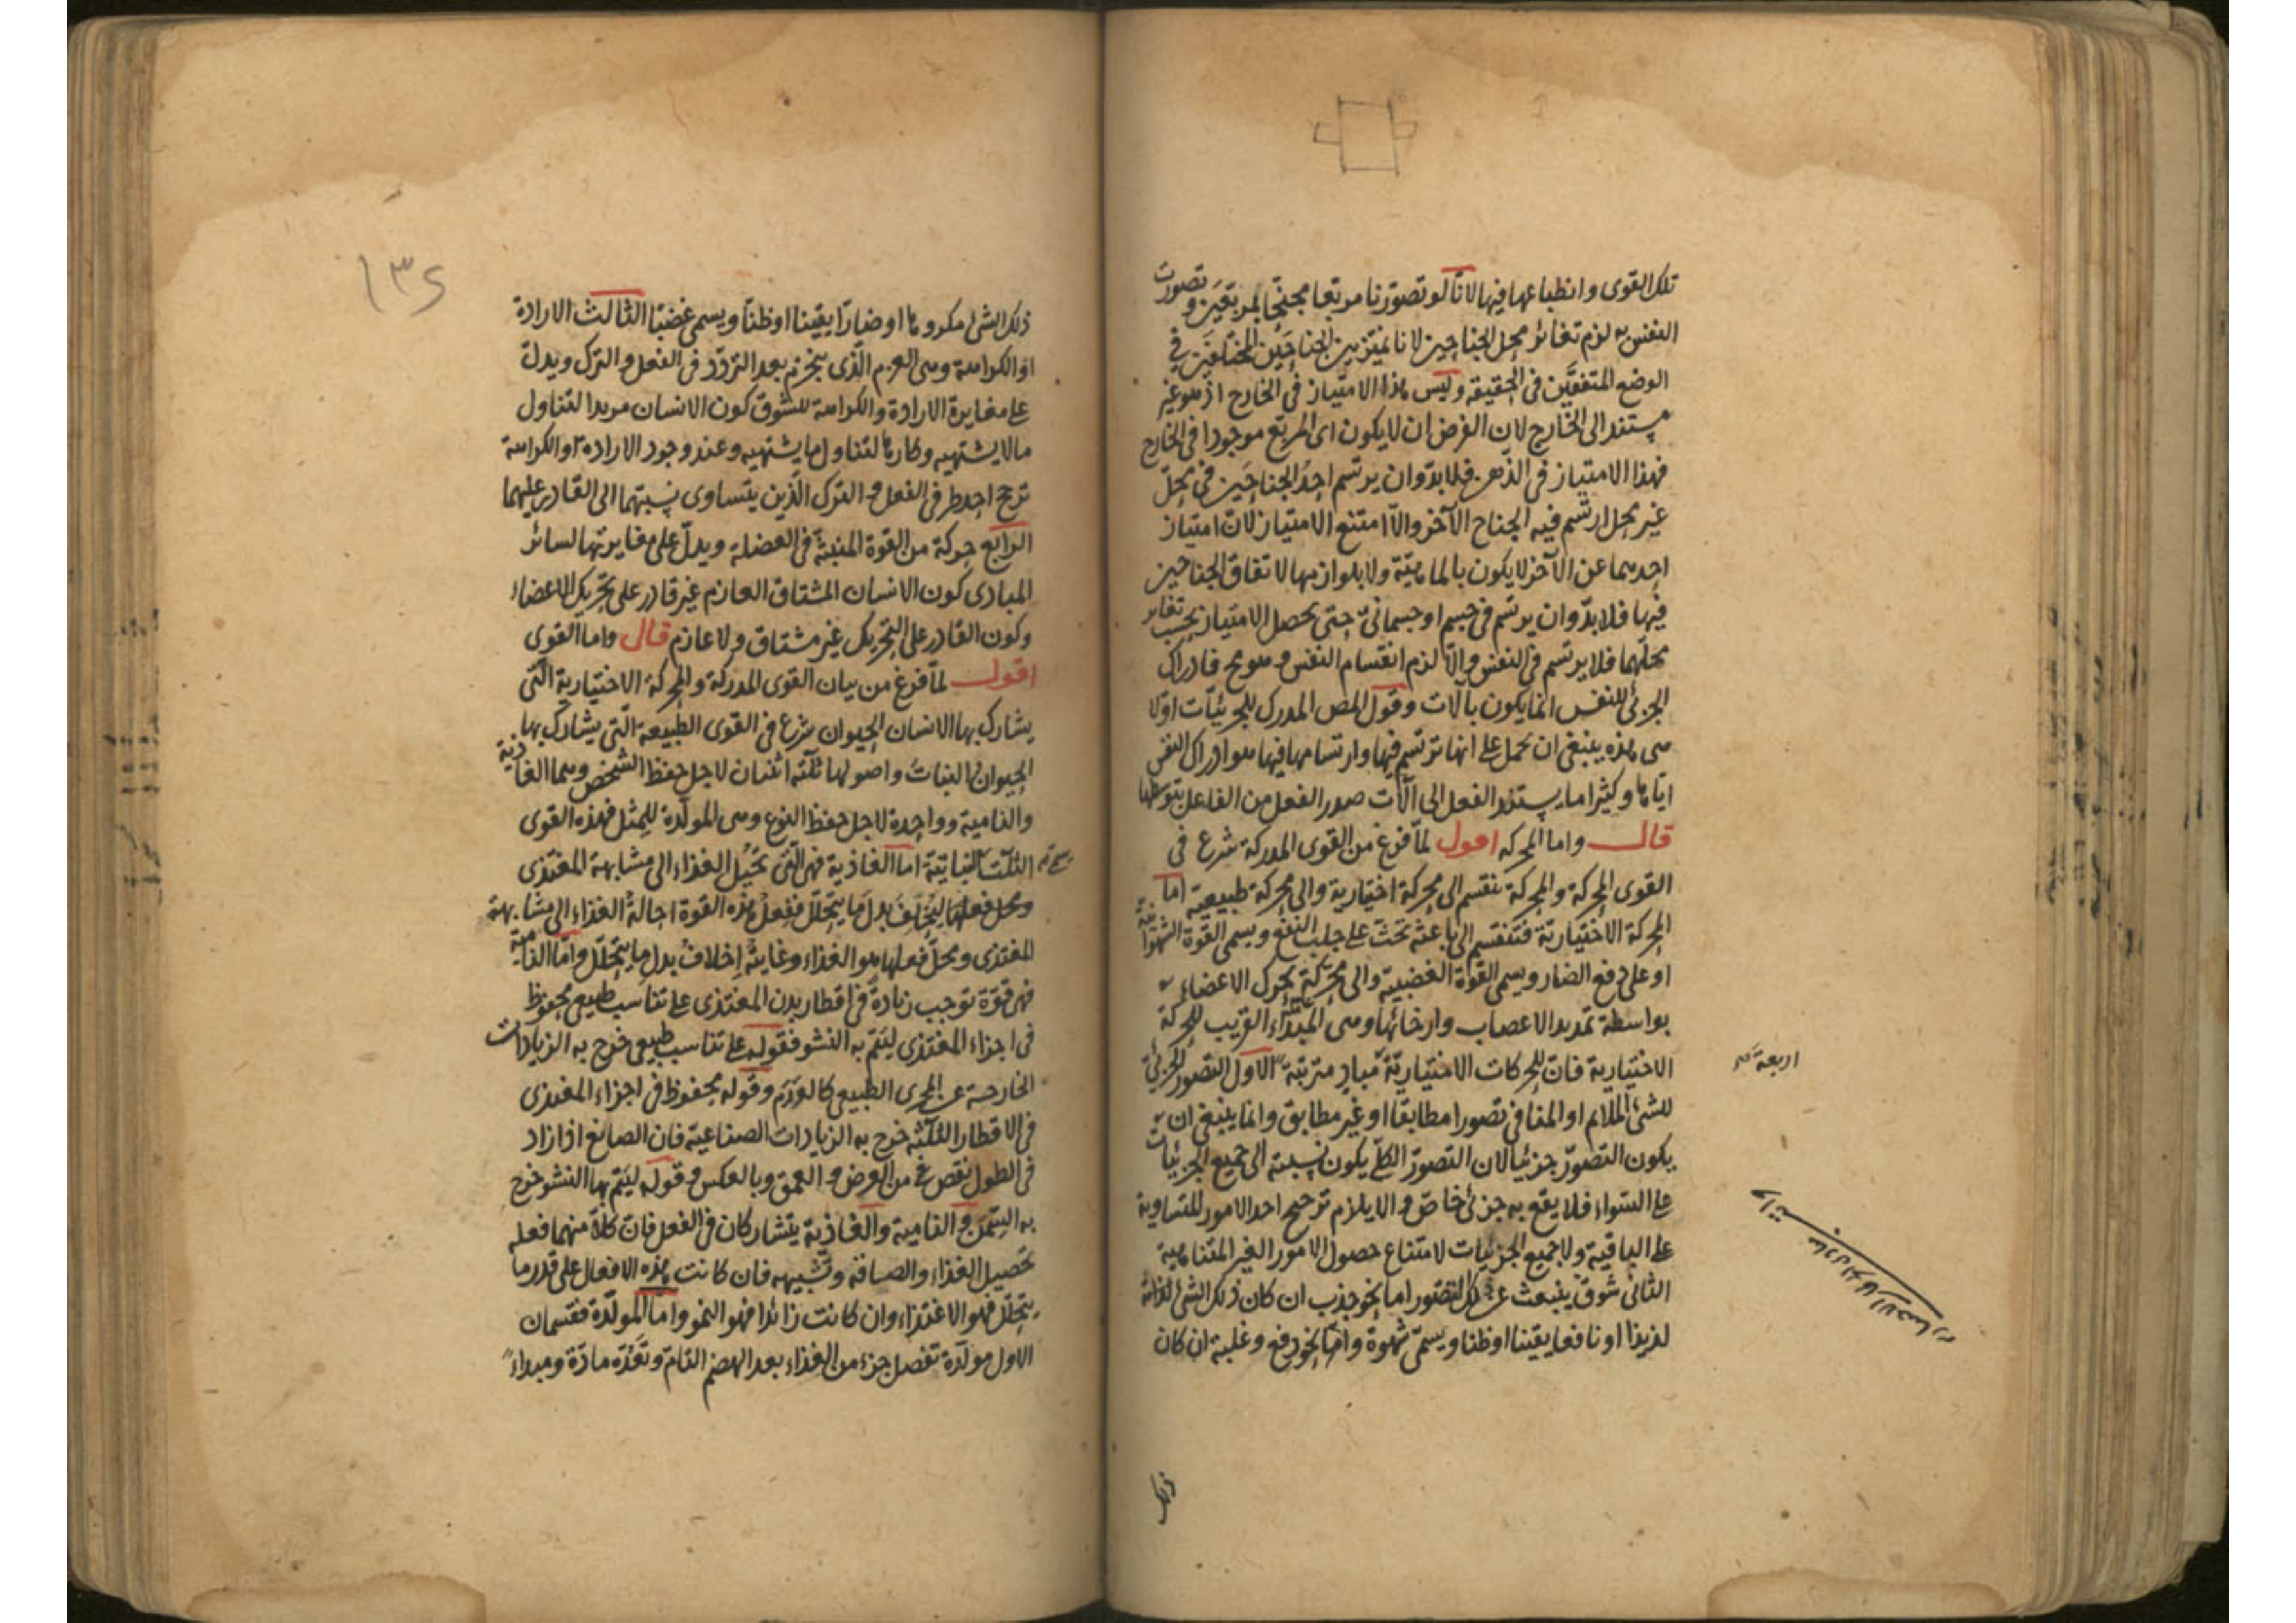 تلك القوى وانطباعها فيها لانا لو تصورنا مربعا مجنحا بمربعين وتصورت
النفس به لزم تغائر محل الجناحين لانا نميز بين الجناحين المختلفين في
الوضع المتفقين في الحقيقة وليس هذا الامتياز في الخارج اذ هو غير
مستند الى الخارج لان الفرض ان لا يكون اى المربع موجودا في الخارج
فهذا الامتياز في الذهن فلا بد وان يرتسم احد الجناحين في محل
غير محل ارتسم فيه الجناح الآخر والا امتنع الامتياز لان امتياز
احدهما عن الآخر لا يكون بالماهية ولا بلوازمها لاتفاق الجناحين
فيها فلا بد وان يرتسم في جسم او جسماني حتى يحصل الامتياز بحسب تغاير
محلهما فلا يرتسم في النفس والا لزم انقسام النفس وهو مح فادراك
الجزئي للنفس انما يكون بآلات وقول المص المدرك للجزئيات اولا
هى هذه ينبغي ان يحمل على انها ترتسم فيها وارتسامها فيها هو ادراك النفس
اياها وكثيرا ما يستند الفعل الى الآلات صدر الفعل من الفاعل بتوسطها
قال واما المحركه اقول لما فرغ من القوى المدركة شرع في
القوى المحركة والمحركة تنقسم الى محركة اختيارية والى محركة طبيعية اما
المحركة الاختيارية فتنقسم الى باعثة تحث على جلب النفع ويسمى القوة الشهوانية
او على دفع الضار ويسمى القوة الغضبية والى محركة تحرك الاعضاء
بواسطة تمديد الاعصاب وارخائها وهى المبداء القريب للحركة
الاختيارية فان للحركات الاختيارية مباد مترتبة الاول التصور الجزئي
اربعة صح
للشئ الملائم او المنافى تصورا مطابقا او غير مطابق وانما ينبغي ان
يكون التصور جزئيا لان التصور الكلي يكون نسبته الى جميع الجزئيات
على السواء فلا يقع به جزئي خاص والا يلزم ترجيح احد الامور المتساوية
على الباقية ولا جميع الجزئيات لامتناع حصول الامور الغير المتناهية
الثاني شوق ينبعث عن ذلك التصور اما نحو جذب ان كان ذلك الشئ
لذيذا او نافعا يقينا او ظنا ويسمى شهوة واما نحو دفع وغلبة ان كان
ذلك
١٣٤
ذلك الشئ مكروها او ضارا يقينا او ظنا ويسمى غضبا الثالث الارادة
او الكراهة وهى العزم الذى ينجزم بعد التردد في الفعل والترك ويدل
على مغايرة الارادة والكراهة للشوق كون الانسان مريدا لتناول
ما لا يشتهيه وكارها لتناول ما يشتهيه وعند وجود الارادة او الكراهة
ترجح احد طرفي الفعل والترك الذين يتساوى نسبتهما الى القادر عليهما
الرابع حركة من القوة المنبثة في العضلة ويدل على مغايرتها لسائر
المبادى كون الانسان المشتاق العازم غير قادر على تحريك الاعضاء
وكون القادر على التحريك غير مشتاق ولا عازم قال واما القوى
اقول لما فرغ من بيان القوى المدركة والمحركة الاختيارية التى
يشارك بها الانسان الحيوان شرع في القوى الطبيعة التى يشارك بها
الحيوان النبات واصولها ثلثه اثنان لاجل حفظ الشخص وهما الغاذية
والنامية وواحدة لاجل حفظ النوع وهى المولدة للمثل فهذه القوى
الثلث النباتية اما الغاذية فهى التى تحيل الغذاء الى مشابهة المغتذى
ومحل فعلها ليخلف بدل ما يتحلل ففعل هذه القوة احالة الغذاء الى مشابهة
المغتذى ومحل فعلها هو الغذاء وغايته اخلاف بدل ما يتحلل واما النامية
فهى قوة توجب زيادة في اقطار بدن المغتذى على تناسب طبيعي محفوظ
في اجزاء المغتذى ليتم به النشو فقوله على تناسب طبيعي خرج به الزيادات
الخارجة عن المجرى الطبيعي كالورم وقوله محفوظ في اجزاء المغتذى
في الاقطار الثلثه خرج به الزيادات الصناعية فان الصانع اذا زاد
في الطول نقص من العرض والعمق وبالعكس وقوله ليتم بها النشو خرج
به السمن والنامية والغاذية يتشاركان في الفعل فان كلا منهما فعله
تحصيل الغذاء والصاقه وتشبيهه فان كانت هذه الافعال على قدر ما
يتحلل فهو الاغتذاء وان كانت زائدا فهو النمو واما المولدة فقسمان
الاول مولدة تفصل جزء من الغذاء بعد الهضم التام وتعده مادة ومبداء